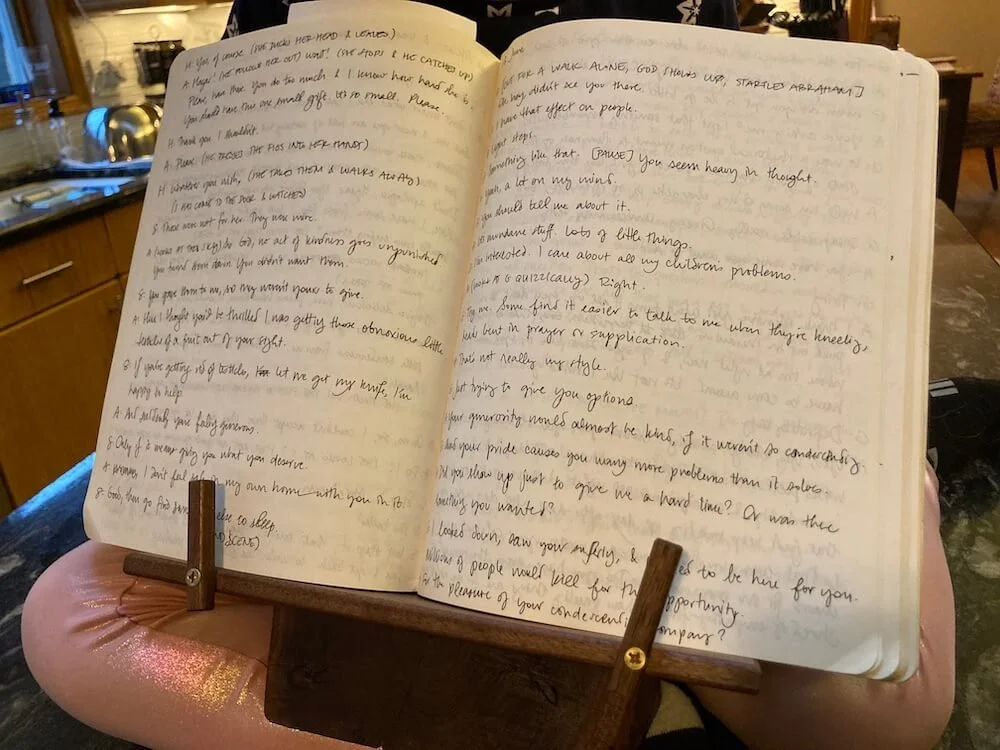 H: Yes, of course. (SHE DUCKS HER HEAD & LEAVES)
A: Hagar! (HE FOLLOWS HER OUT) Wait! (SHE STOPS & HE CATCHES UP)
Please, have these. You do too much & I know how hard she is,
You should have this one small gift. It's so small. Please.
H: Thank you. I shouldn't.
A: Please. (HE PRESSES THE FIGS INTO HER HANDS)
H: Whatever you wish, (SHE TAKES THEM & WALKS AWAY)
(S HAS COME TO THE DOOR & WATCHES)
S: Those were not for her. They were mine.
A: (LOOKS AT THE SKY) God, no act of kindness goes unpunished
You turned them down. You didn't want them.
S: You gave them to me, so they weren't yours to give.
A: Here I thought you'd be thrilled I was getting those obnoxious little
testicles of a fruit out of your sight.
S: If you're getting rid of testicles, let me get my knife, I'm
happy to help.
A: And suddenly you're feeling generous.
S: Only if it means giving you what you deserve.
A: I don't feel in my own home with you in it.
S: Good, then go find else to sleep.
SCENE)
FOR A WALK ALONE, GOD SHOWS UP, STARTLES ABRAHAM]
didn't see you there.
I have that effect on people.
stops.
Something like that. [PAUSE] You seem heavy in thought.
Yeah, a lot on my mind.
You should tell me about it.
mundane stuff. Lots of little things.
I'm interested. I care about all my children's problems.
(LOOKS AT G QUIZZICALLY) Right.
Try me. Some find it easier to talk to me when they're kneeling,
heads bent in prayer or supplication.
That's not really my style.
Just trying to give you options.
Your generosity would almost be kind, if it weren't so condescending.
And your pride causes you many more problems than it solves.
Did you show up just to give me a hard time? Or was there
something you wanted?
I looked down, saw your suffering, & to be here for you.
Millions of people would kill for this opportunity.
For the pleasure of your condescending company?